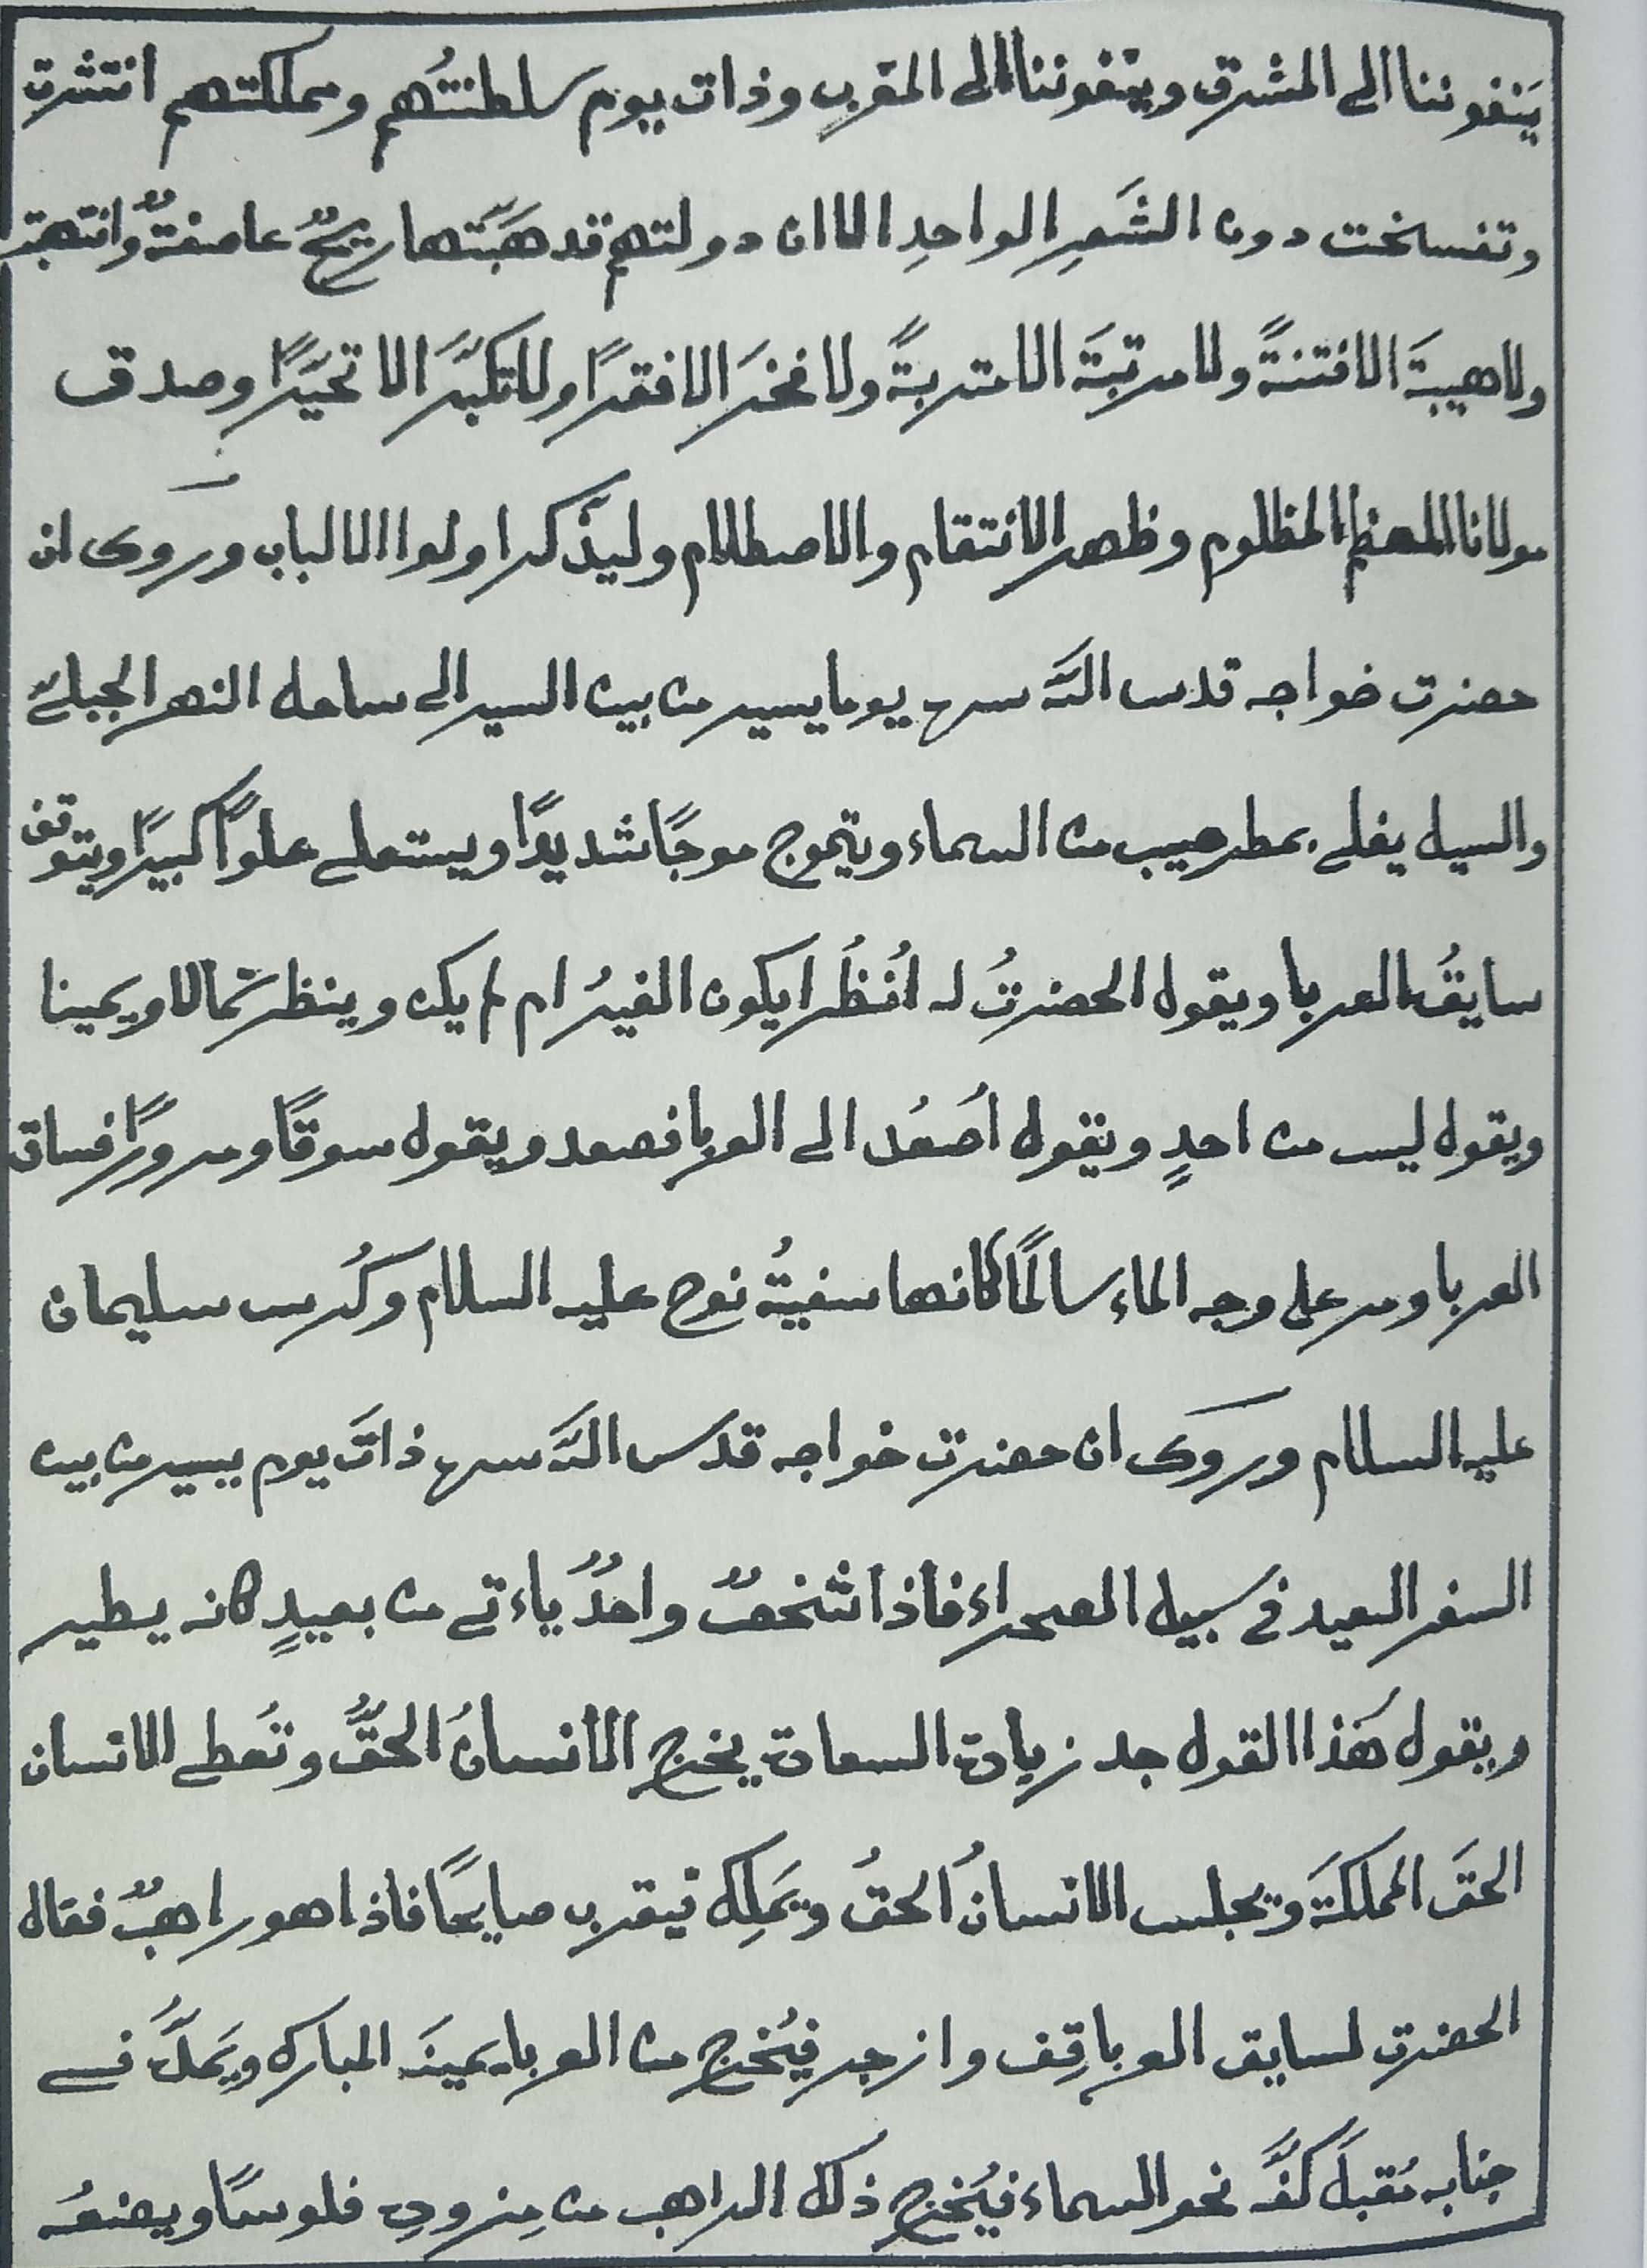 يَنفوننا الى المشرق وينفوننا الى المغرب وذات يوم سلطنتُهم ومملكتهم انتشرت
وتفسخت دون الشَعرِ الواحدِ الا ان دولتهم قد هَبَّتها ريحٌ عاصفةٌ وانتهبت
ولا هيبةَ الا فتنةً ولا مرتبَةَ الا متربةً ولا فخرَ الا فقرًا ولا تكبّرَ الا تحيّرًا وصدق
مولانا المعظم المظلوم وظهر الانتقام والاصطلام وليذّكر اولوا الالباب وروى ان
حضرت خواجه قدس اللّه سره يوما يسير من بين السير الى ساحل النهر الجبلے
والسيل يغلے بمطر صيب من السماء ويتموج موجًا شديدًا ويستعلے علوًا كبيرًا ويتوقف
سايقُ العربا ويقول الحضرتُ له اُنظُر ايكون الغيرُ ام لم يكن وينظر شمالا ويمينا
ويقول ليس من احدٍ ويقول اُصعُد الى العربا فصعد ويقول سوقًا ومرورًا فساق
العربا ومر على وجه الماء سالمًا كانها سفينةُ نوح عليه السلام وكُرسے سليمان
عليه السلام وروى ان حضرت خواجه قدس اللّه سره ذاتَ يوم يسير من بين
السفر السعيد فى سبيل الصحراء فاذا شخصٌ واحدٌ ياءتے من بعيدٍ كانه يطير
ويقول هَذا القول جد زيادة السعادة يخرج الانسانُ الحقُّ وتُعطے الانسان
الحقَ المملكةَ ويجلس الانسانُ الحقُ ويَملِك فيقرب صايحًا فاذا هو راهبٌ فقال
الحضرت لسايق العربا قِف وازجر فيُخرج من العربا يمينَه المباركَ ويَملُّ فے
جنابه مُقبلَ كفَّه نحو السماء فيُخرج ذلك الراهب من مِزودِه فلوسًا ويضعُه